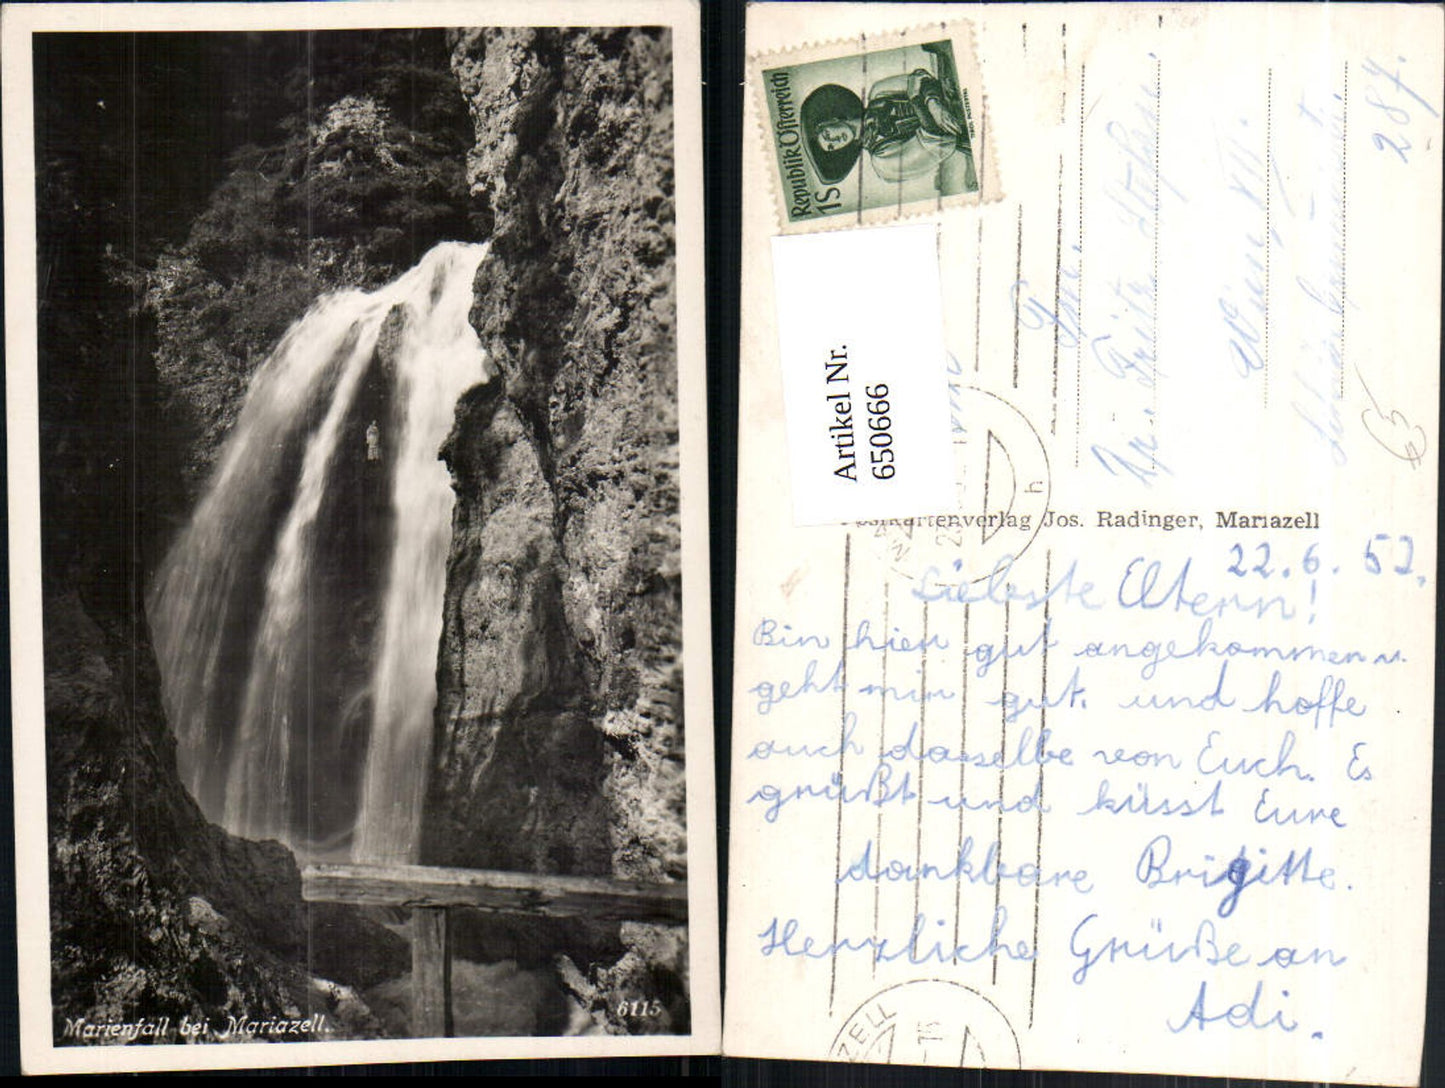 Marienfall bei Mariazell.
6115
Republik Österreich
1S
Artikel Nr.
650666
Postkartenverlag Jos. Radinger, Mariazell
Fritz
Wien
287.
h
22.6.52.
Liebste Eltern!
Bin hier gut angekommen u.
geht mir gut. und hoffe
auch dasselbe von Euch. Es
grüßt und küsst Eure
dankbare Brigitte.
Herzliche Grüße an
Adi.
ZELL